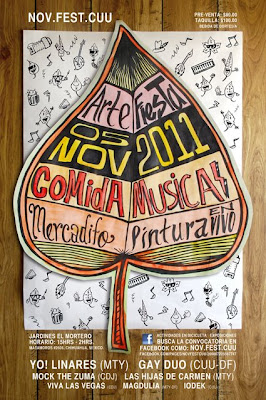 NOV.FEST.CUU
PRE-VENTA: $80.00
TAQUILLA: $100.00
BEBIDA DE CORTESIA
Arte Fiesta
05
NOV 2011
CoMidA MUSICA!
Mercadito Pintura EN VIVO
JARDINES EL MORTERO
HORARIO: 15HRS - 2HRS.
ACTIVIDADES EN BICICLETA EXPOSICIONES
BUSCA LA CONVOCATORIA EN
FACEBOOK COMO: NOV.FEST.CUU
YO! LINARES (MTY) GAY DUO (CUU-DF)
MOCK THE ZUMA (CDJ) LAS HIJAS DE CARMEN (MTY)
VIVA LAS VEGAS MAGDULIA IODEK